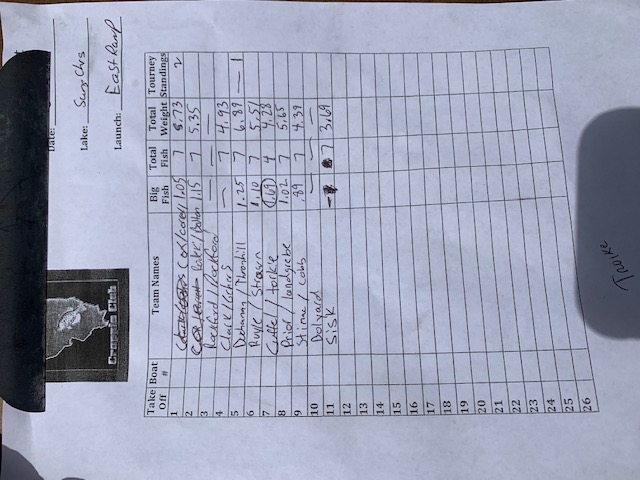 Date:
Lake: Sang Chris
Launch: East Ramp
Crappie Club
Take Off Boat # Team Names Big Fish Total Fish Total Weight Tourney Standings
1 Cox/Corey 1.05 7 6.73 2
2 / Bolton 1.15 7 5.35
3 — — —
4 Clark / — 7 4.93
5 / Thornhill 1.25 7 6.89 — 1
6 Ruyle / Strawn 1.10 7 5.51
7 / Torkie 1.69 4 4.28
8 Prior / Landgrebe 1.02 7 5.65
9 / Cobb .89 7 4.39
10 Bolyard — — —
11 Sisk — 7 3.69
12
13
14
15
16
17
18
19
20
21
22
23
24
25
26